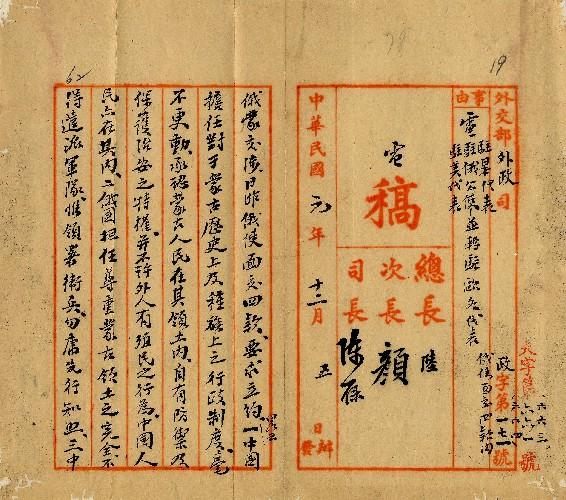 19
外交部外政司
事由
電
駐俄公使並轉駐歐各代表
駐美代表
俄使面交四款由
政字第一七一號
電
稿
總長 陸
次長 顏
司長 陳
中華民國元年十二月五日
發辦
62
俄蒙交涉日昨俄使面交四款要求立約一中國
擔任對于蒙古歷史上及種族上之行政制度毫
不更動承認蒙古人民在其領土內自有防禦及
保護治安之特權並不許外人有殖民之行為中國人
民亦在其內二俄國担任尊重蒙古領土之完全不
得遣派軍隊惟領署衛兵勿庸先行知照三中